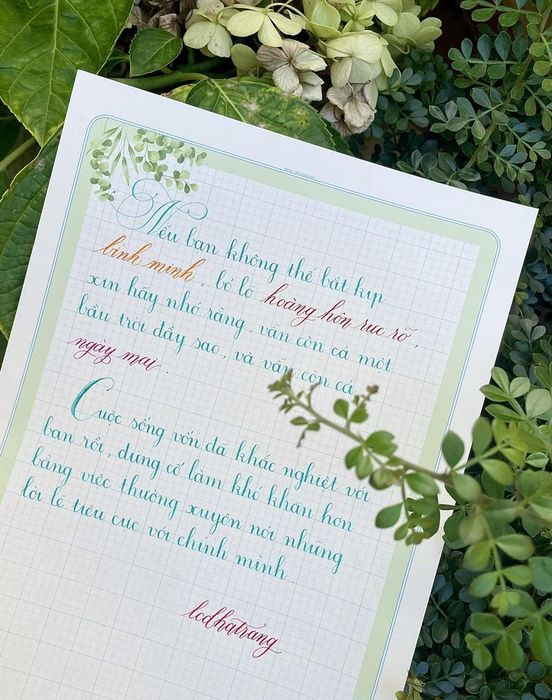 "Nếu bạn không thể bắt kịp
bình minh, bỏ lỡ hoàng hôn rực rỡ,
xin hãy nhớ rằng, vẫn còn cả một
bầu trời đầy sao, và vẫn còn cả
ngày mai.
Cuộc sống vốn đã khắc nghiệt với
bạn rồi, đừng cố làm khó khăn hơn
bằng việc thường xuyên nói những
lời lẽ tiêu cực với chính mình
lcdhatrang